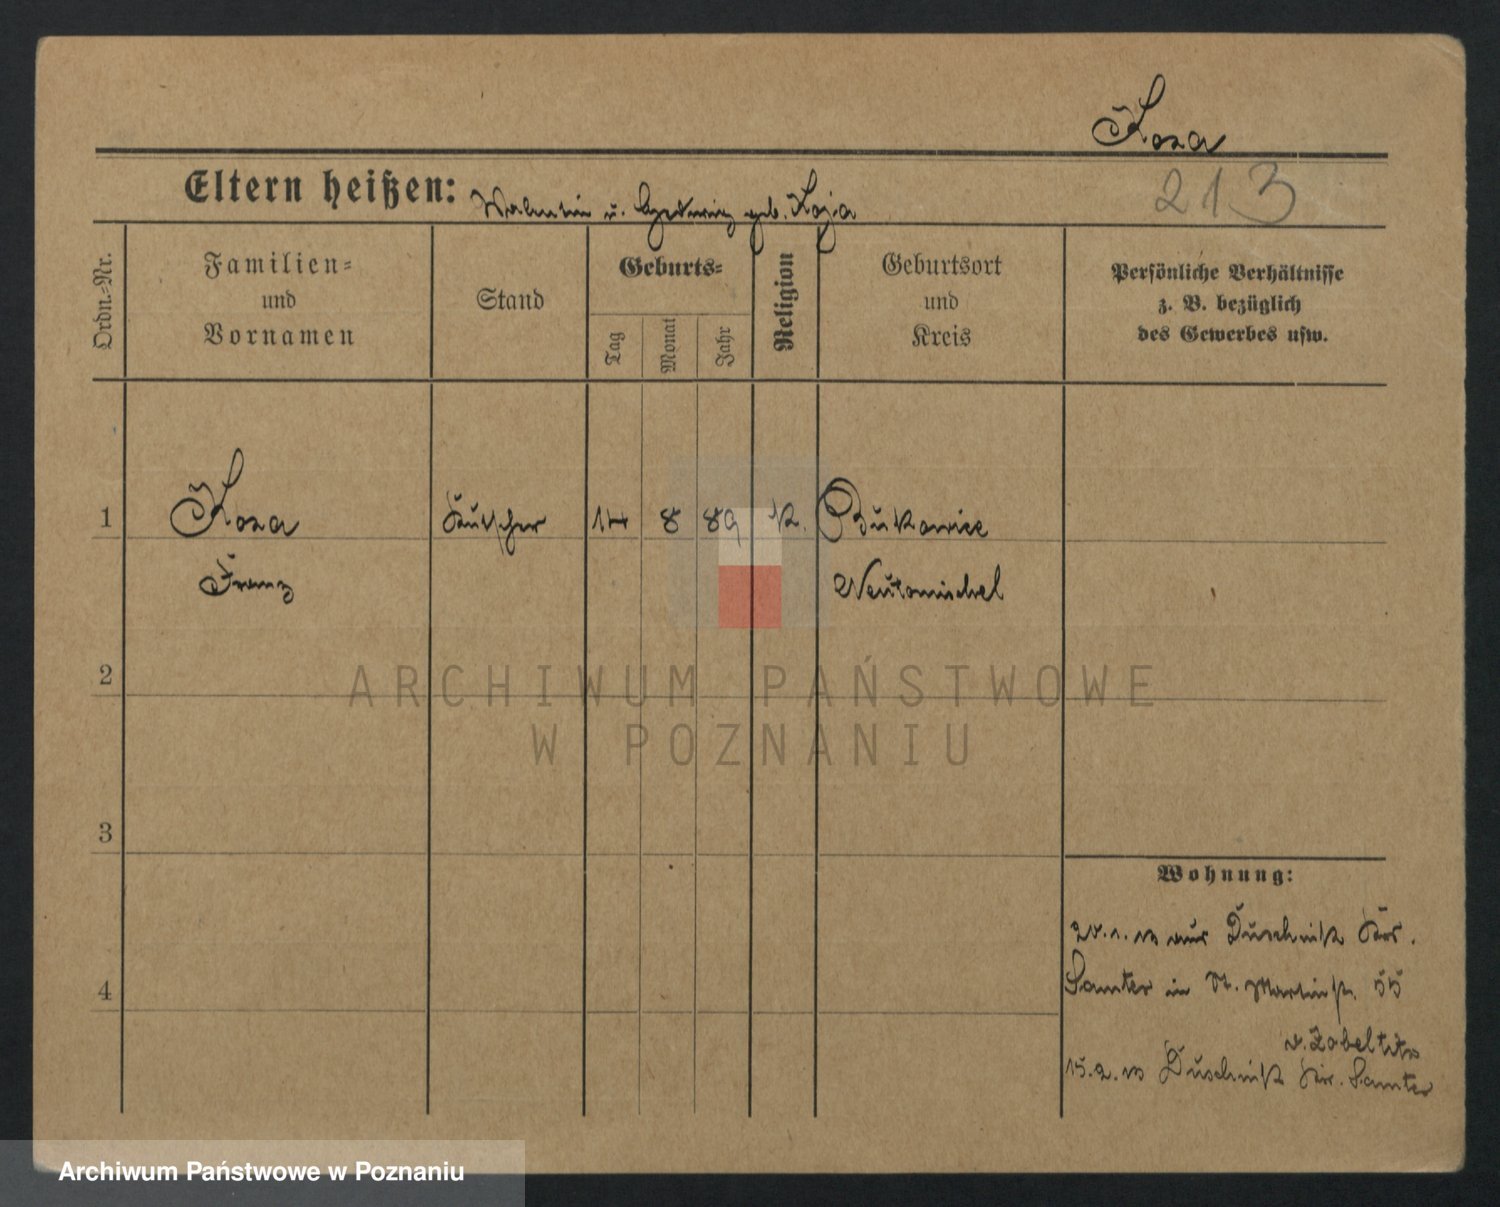 Koza
Eltern heißen: Valentin u. Hedwig geb. Koza
213
Ordn.-Nr.
Familien-
und
Vornamen
Stand
Geburts-
Tag
Monat
Jahr
Religion
Geburtsort
und
Kreis
Persönliche Verhältnisse
z. B. bezüglich
des Gewerbes usw.
1 Koza Kutscher 14 8 89 k. Bukowiec
Franz Neutomischel
2
3
4
Wohnung:
aus Duschnik Kr.
Samter in St. Martinstr. 55
v. Zobeltitz
15.2.13 Duschnik Kr. Samter
ARCHIWUM PAŃSTWOWE
W POZNANIU
Archiwum Państwowe w Poznaniu